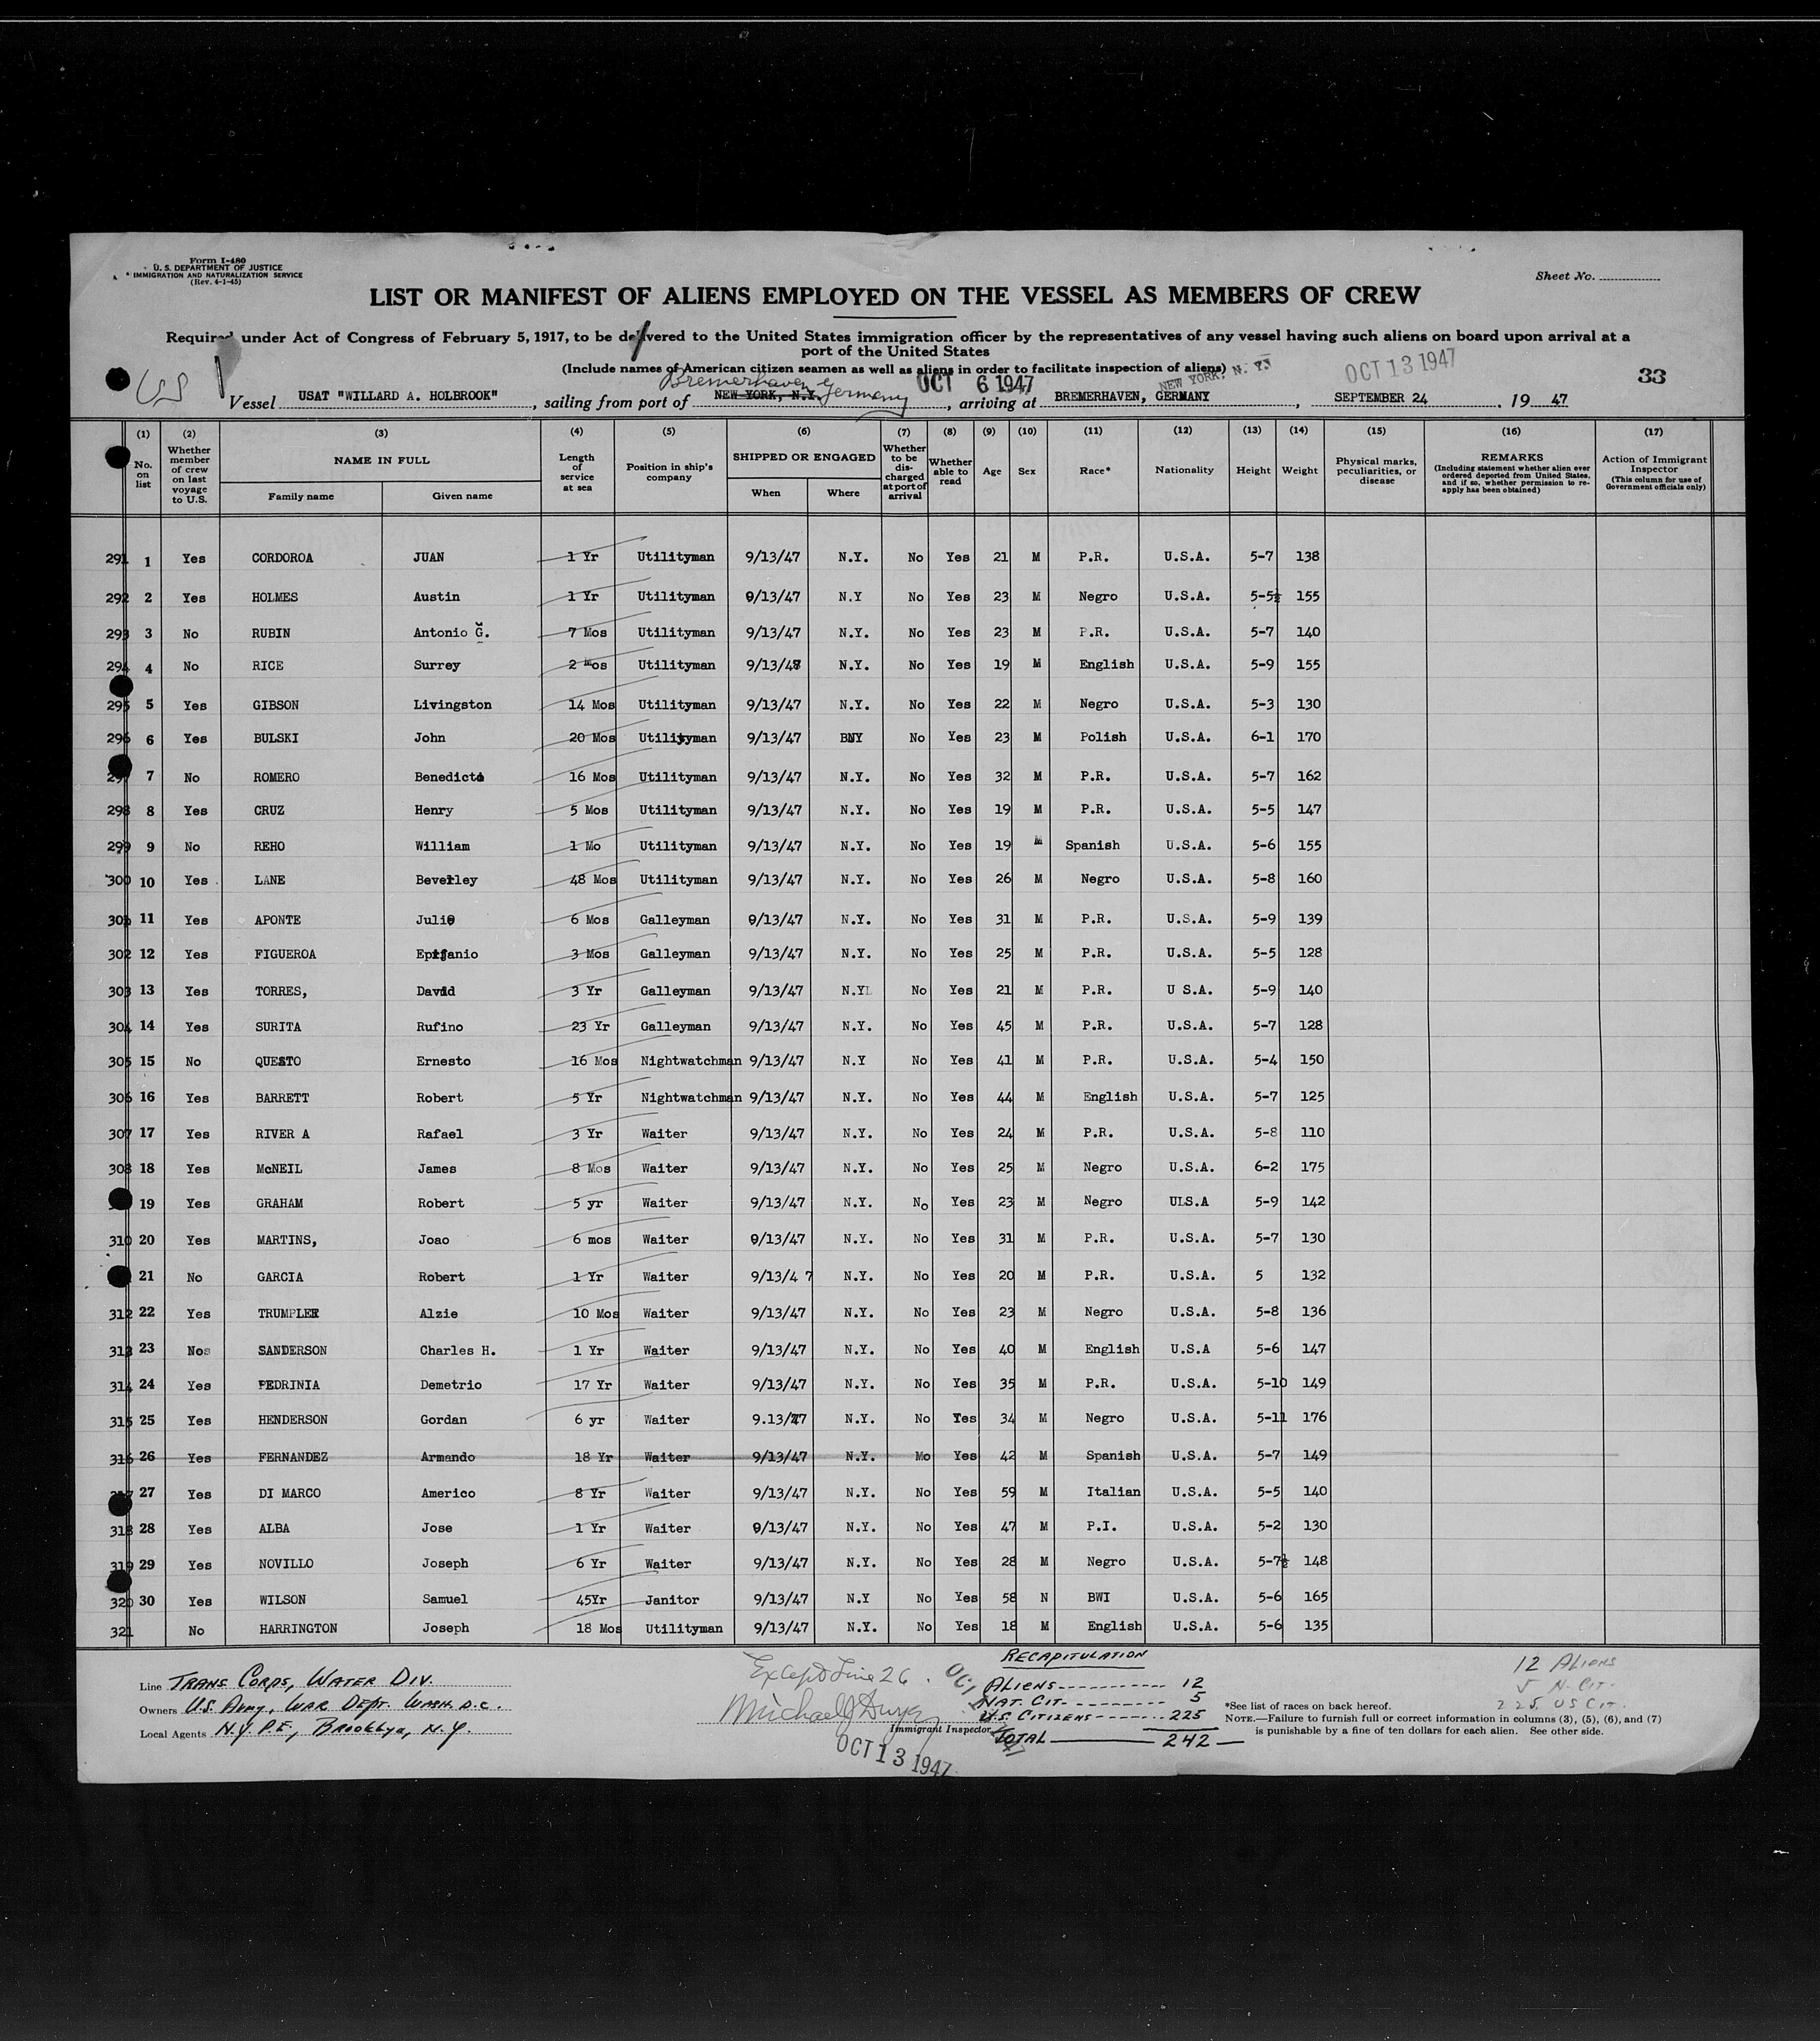 Form I-480
U. S. DEPARTMENT OF JUSTICE
IMMIGRATION AND NATURALIZATION SERVICE
(Rev. 4-1-45)
Sheet No.
LIST OR MANIFEST OF ALIENS EMPLOYED ON THE VESSEL AS MEMBERS OF CREW
Required under Act of Congress of February 5, 1917, to be delivered to the United States immigration officer by the representatives of any vessel having such aliens on board upon arrival at a
port of the United States
(Include names of American citizen seamen as well as aliens in order to facilitate inspection of aliens)
US
Bremerhaven Germany OCT 6 1947 NEW YORK, N. Y. OCT 13 1947 33
Vessel USAT "WILLARD A. HOLBROOK", sailing from port of NEW YORK, N.Y., arriving at BREMERHAVEN, GERMANY, SEPTEMBER 24, 19 47
(1) (2) (3) (4) (5) (6) (7) (8) (9) (10) (11) (12) (13) (14) (15) (16) (17)
No. on list
Whether member of crew on last voyage to U.S.
NAME IN FULL
Family name
Given name
Length of service at sea
Position in ship's company
SHIPPED OR ENGAGED
When
Where
Whether to be discharged at port of arrival
Whether able to read
Age
Sex
Race*
Nationality
Height
Weight
Physical marks, peculiarities, or disease
REMARKS
(Including statement whether alien ever ordered deported from United States, and if so, whether permission to re-apply has been obtained)
Action of Immigrant Inspector
(This column for use of Government officials only)
291 1 Yes CORDOROA JUAN 1 Yr Utilityman 9/13/47 N.Y. No Yes 21 M P.R. U.S.A. 5-7 138
292 2 Yes HOLMES Austin 1 Yr Utilityman 9/13/47 N.Y No Yes 23 M Negro U.S.A. 5-5½ 155
293 3 No RUBIN Antonio G. 7 Mos Utilityman 9/13/47 N.Y. No Yes 23 M P.R. U.S.A. 5-7 140
294 4 No RICE Surrey 2 mos Utilityman 9/13/47 N.Y. No Yes 19 M English U.S.A. 5-9 155
295 5 Yes GIBSON Livingston 14 Mos Utilityman 9/13/47 N.Y. No Yes 22 M Negro U.S.A. 5-3 130
296 6 Yes BULSKI John 20 Mos Utilityman 9/13/47 BNY No Yes 23 M Polish U.S.A. 6-1 170
7 No ROMERO Benedict 16 Mos Utilityman 9/13/47 N.Y. No Yes 32 M P.R. U.S.A. 5-7 162
298 8 Yes CRUZ Henry 5 Mos Utilityman 9/13/47 N.Y. No Yes 19 M P.R. U.S.A. 5-5 147
299 9 No REHO William 1 Mo Utilityman 9/13/47 N.Y. No Yes 19 M Spanish U.S.A. 5-6 155
300 10 Yes LANE Beverley 48 Mos Utilityman 9/13/47 N.Y. No Yes 26 M Negro U.S.A. 5-8 160
301 11 Yes APONTE Julio 6 Mos Galleyman 9/13/47 N.Y. No Yes 31 M P.R. U.S.A. 5-9 139
302 12 Yes FIGUEROA Epifanio 3 Mos Galleyman 9/13/47 N.Y. No Yes 25 M P.R. U.S.A. 5-5 128
303 13 Yes TORRES, David 3 Yr Galleyman 9/13/47 N.Y. No Yes 21 M P.R. U S.A. 5-9 140
304 14 Yes SURITA Rufino 23 Yr Galleyman 9/13/47 N.Y. No Yes 45 M P.R. U.S.A. 5-7 128
305 15 No QUESTO Ernesto 16 Mos Nightwatchman 9/13/47 N.Y No Yes 41 M P.R. U.S.A. 5-4 150
306 16 Yes BARRETT Robert 5 Yr Nightwatchman 9/13/47 N.Y. No Yes 44 M English U.S.A. 5-7 125
307 17 Yes RIVER A Rafael 3 Yr Waiter 9/13/47 N.Y. No Yes 24 M P.R. U.S.A. 5-8 110
308 18 Yes McNEIL James 8 Mos Waiter 9/13/47 N.Y. No Yes 25 M Negro U.S.A. 6-2 175
19 Yes GRAHAM Robert 5 yr Waiter 9/13/47 N.Y. No Yes 23 M Negro ULS.A 5-9 142
310 20 Yes MARTINS, Joao 6 mos Waiter 9/13/47 N.Y. No Yes 31 M P.R. U.S.A. 5-7 130
21 No GARCIA Robert 1 Yr Waiter 9/13/4 7 N.Y. No Yes 20 M P.R. U.S.A. 5 132
312 22 Yes TRUMPLER Alzie 10 Mos Waiter 9/13/47 N.Y. No Yes 23 M Negro U.S.A. 5-8 136
313 23 Nos SANDERSON Charles H. 1 Yr Waiter 9/13/47 N.Y. No Yes 40 M English U.S.A 5-6 147
314 24 Yes PEDRINIA Demetrio 17 Yr Waiter 9/13/47 N.Y. No Yes 35 M P.R. U.S.A. 5-10 149
315 25 Yes HENDERSON Gordan 6 yr Waiter 9.13/47 N.Y. No Yes 34 M Negro U.S.A. 5-11 176
316 26 Yes FERNANDEZ Armando 18 Yr Waiter 9/13/47 N.Y. Mo Yes 42 M Spanish U.S.A. 5-7 149
27 Yes DI MARCO Americo 8 Yr Waiter 9/13/47 N.Y. No Yes 59 M Italian U.S.A. 5-5 140
318 28 Yes ALBA Jose 1 Yr Waiter 9/13/47 N.Y. No Yes 47 M P.I. U.S.A. 5-2 130
319 29 Yes NOVILLO Joseph 6 Yr Waiter 9/13/47 N.Y. No Yes 28 M Negro U.S.A. 5-7½ 148
320 30 Yes WILSON Samuel 45Yr Janitor 9/13/47 N.Y No Yes 58 N BWI U.S.A. 5-6 165
321 No HARRINGTON Joseph 18 Mos Utilityman 9/13/47 N.Y. No Yes 18 M English U.S.A. 5-6 135
Line TRANS CORPS, WATER DIV.
Owners U.S. Army, WAR DEPT. WASH. D.C.
Local Agents N.Y. P.E, Brooklyn, N.Y.
Except Line 26.
Michael J Dwyer
Immigrant Inspector
OCT 13 1947
OCT 1947
RECAPITULATION
ALIENS 12
NAT. CIT. 5
U.S. CITIZENS 225
TOTAL 242
12 Aliens
5 N. Cit.
225 US Cit.
*See list of races on back hereof.
NOTE.—Failure to furnish full or correct information in columns (3), (5), (6), and (7)
is punishable by a fine of ten dollars for each alien. See other side.